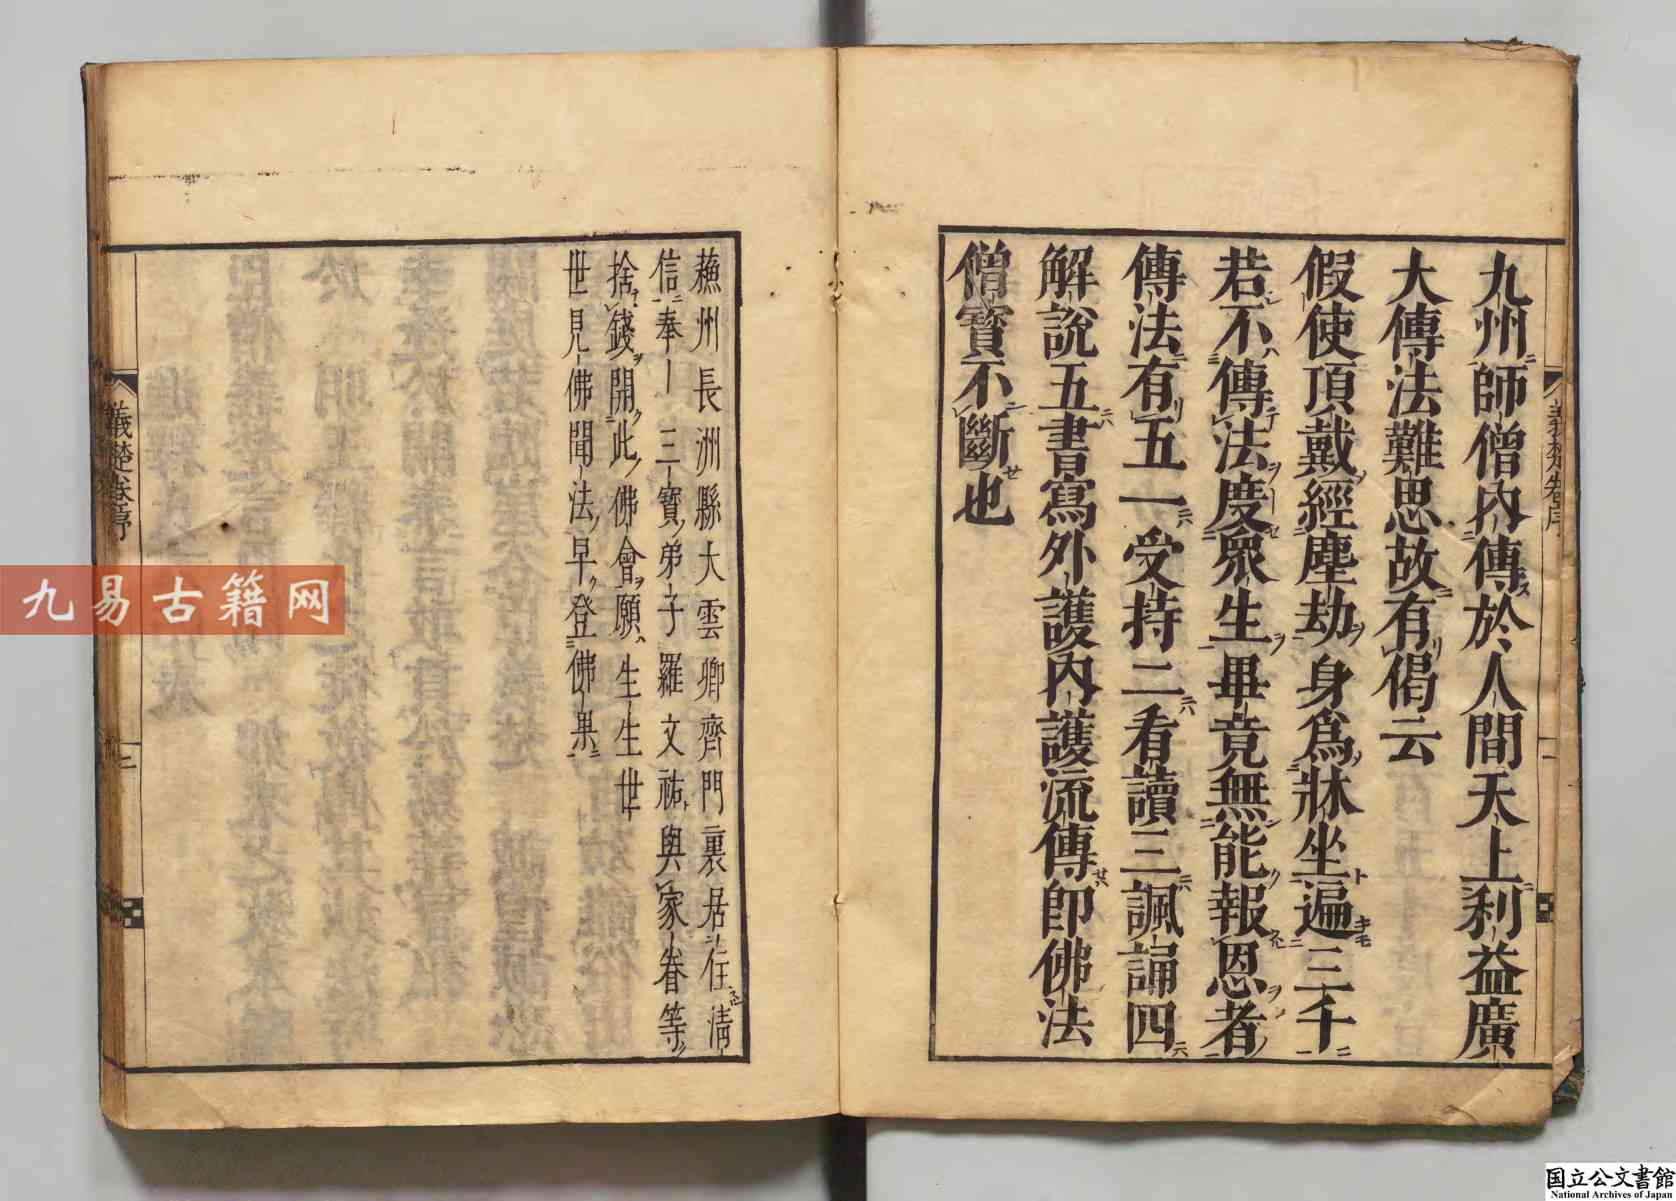 九州師僧內傳於人間天上利益廣
大傳法難思故有偈云
假使頂戴經塵劫身爲牀坐遍三千
若不傳法度衆生畢竟無能報恩者
傳法有五一受持二看讀三諷誦四
解說五書寫外護內護流傳即佛法
僧寶不斷也
義楚卷序
一
蘓州長洲縣大雲鄉齊門裏居住清
信奉三寶弟子羅文祐與家眷等
捨錢開此佛會願生生世
世見佛聞法早登佛果
義楚卷序
二
九易古籍网
国立公文書館
National Archives of Japan